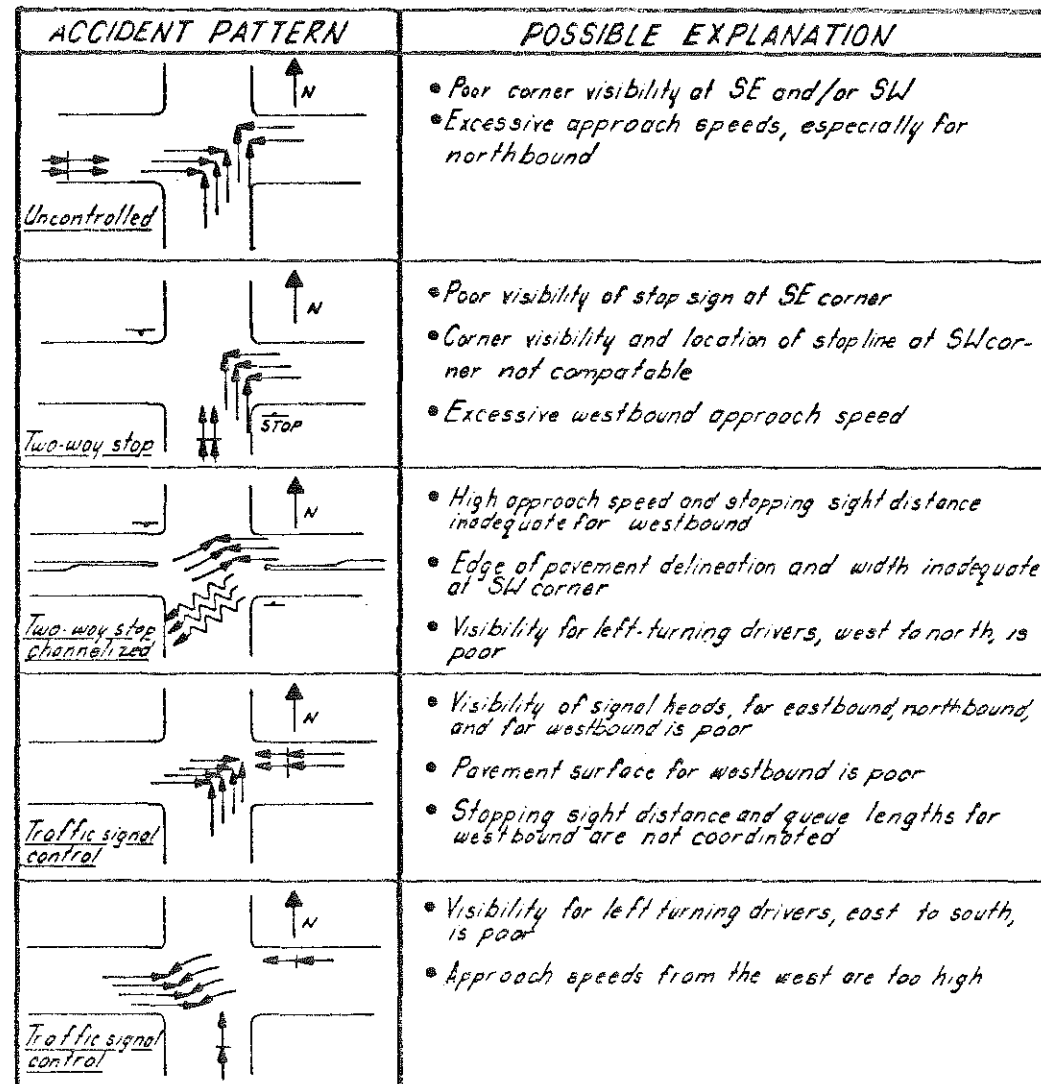 ACCIDENT PATTERN
POSSIBLE EXPLANATION
N
Uncontrolled
• Poor corner visibility at SE and/or SW
• Excessive approach speeds, especially for
northbound
N
STOP
Two-way stop
• Poor visibility of stop sign at SE corner
• Corner visibility and location of stop line at SW cor-
ner not compatable
• Excessive westbound approach speed
N
Two-way stop
channelized
• High approach speed and stopping sight distance
inadequate for westbound
• Edge of pavement delineation and width inadequate
at SW corner
• Visibility for left-turning drivers, west to north, is
poor
N
Traffic signal
control
• Visibility of signal heads, for eastbound, northbound,
and for westbound is poor
• Pavement surface for westbound is poor
• Stopping sight distance and queue lengths for
westbound are not coordinated
N
Traffic signal
control
• Visibility for left turning drivers, east to south,
is poor
• Approach speeds from the west are too high